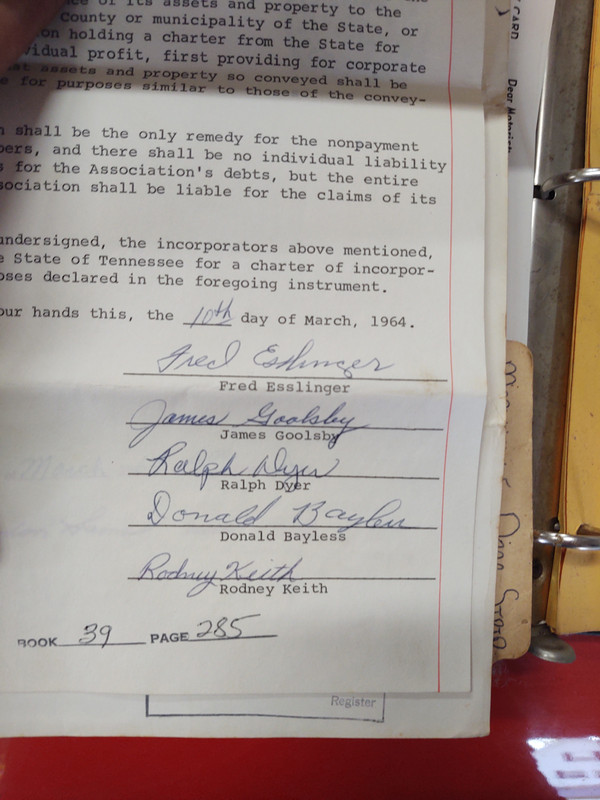 of its assets and property to the
County or municipality of the State, or
on holding a charter from the State for
vidual profit, first providing for corporate
at assets and property so conveyed shall be
e for purposes similar to those of the convey-
n shall be the only remedy for the nonpayment
bers, and there shall be no individual liability
s for the Association's debts, but the entire
sociation shall be liable for the claims of its
undersigned, the incorporators above mentioned,
e State of Tennessee for a charter of incorpor-
oses declared in the foregoing instrument.
our hands this, the 10th day of March, 1964.
Fred Esslinger
Fred Esslinger
James Goolsby
James Goolsby
Ralph Dyer
Ralph Dyer
Donald Bayless
Donald Bayless
Rodney Keith
Rodney Keith
BOOK 39 PAGE 285
Register
CARD
Dear